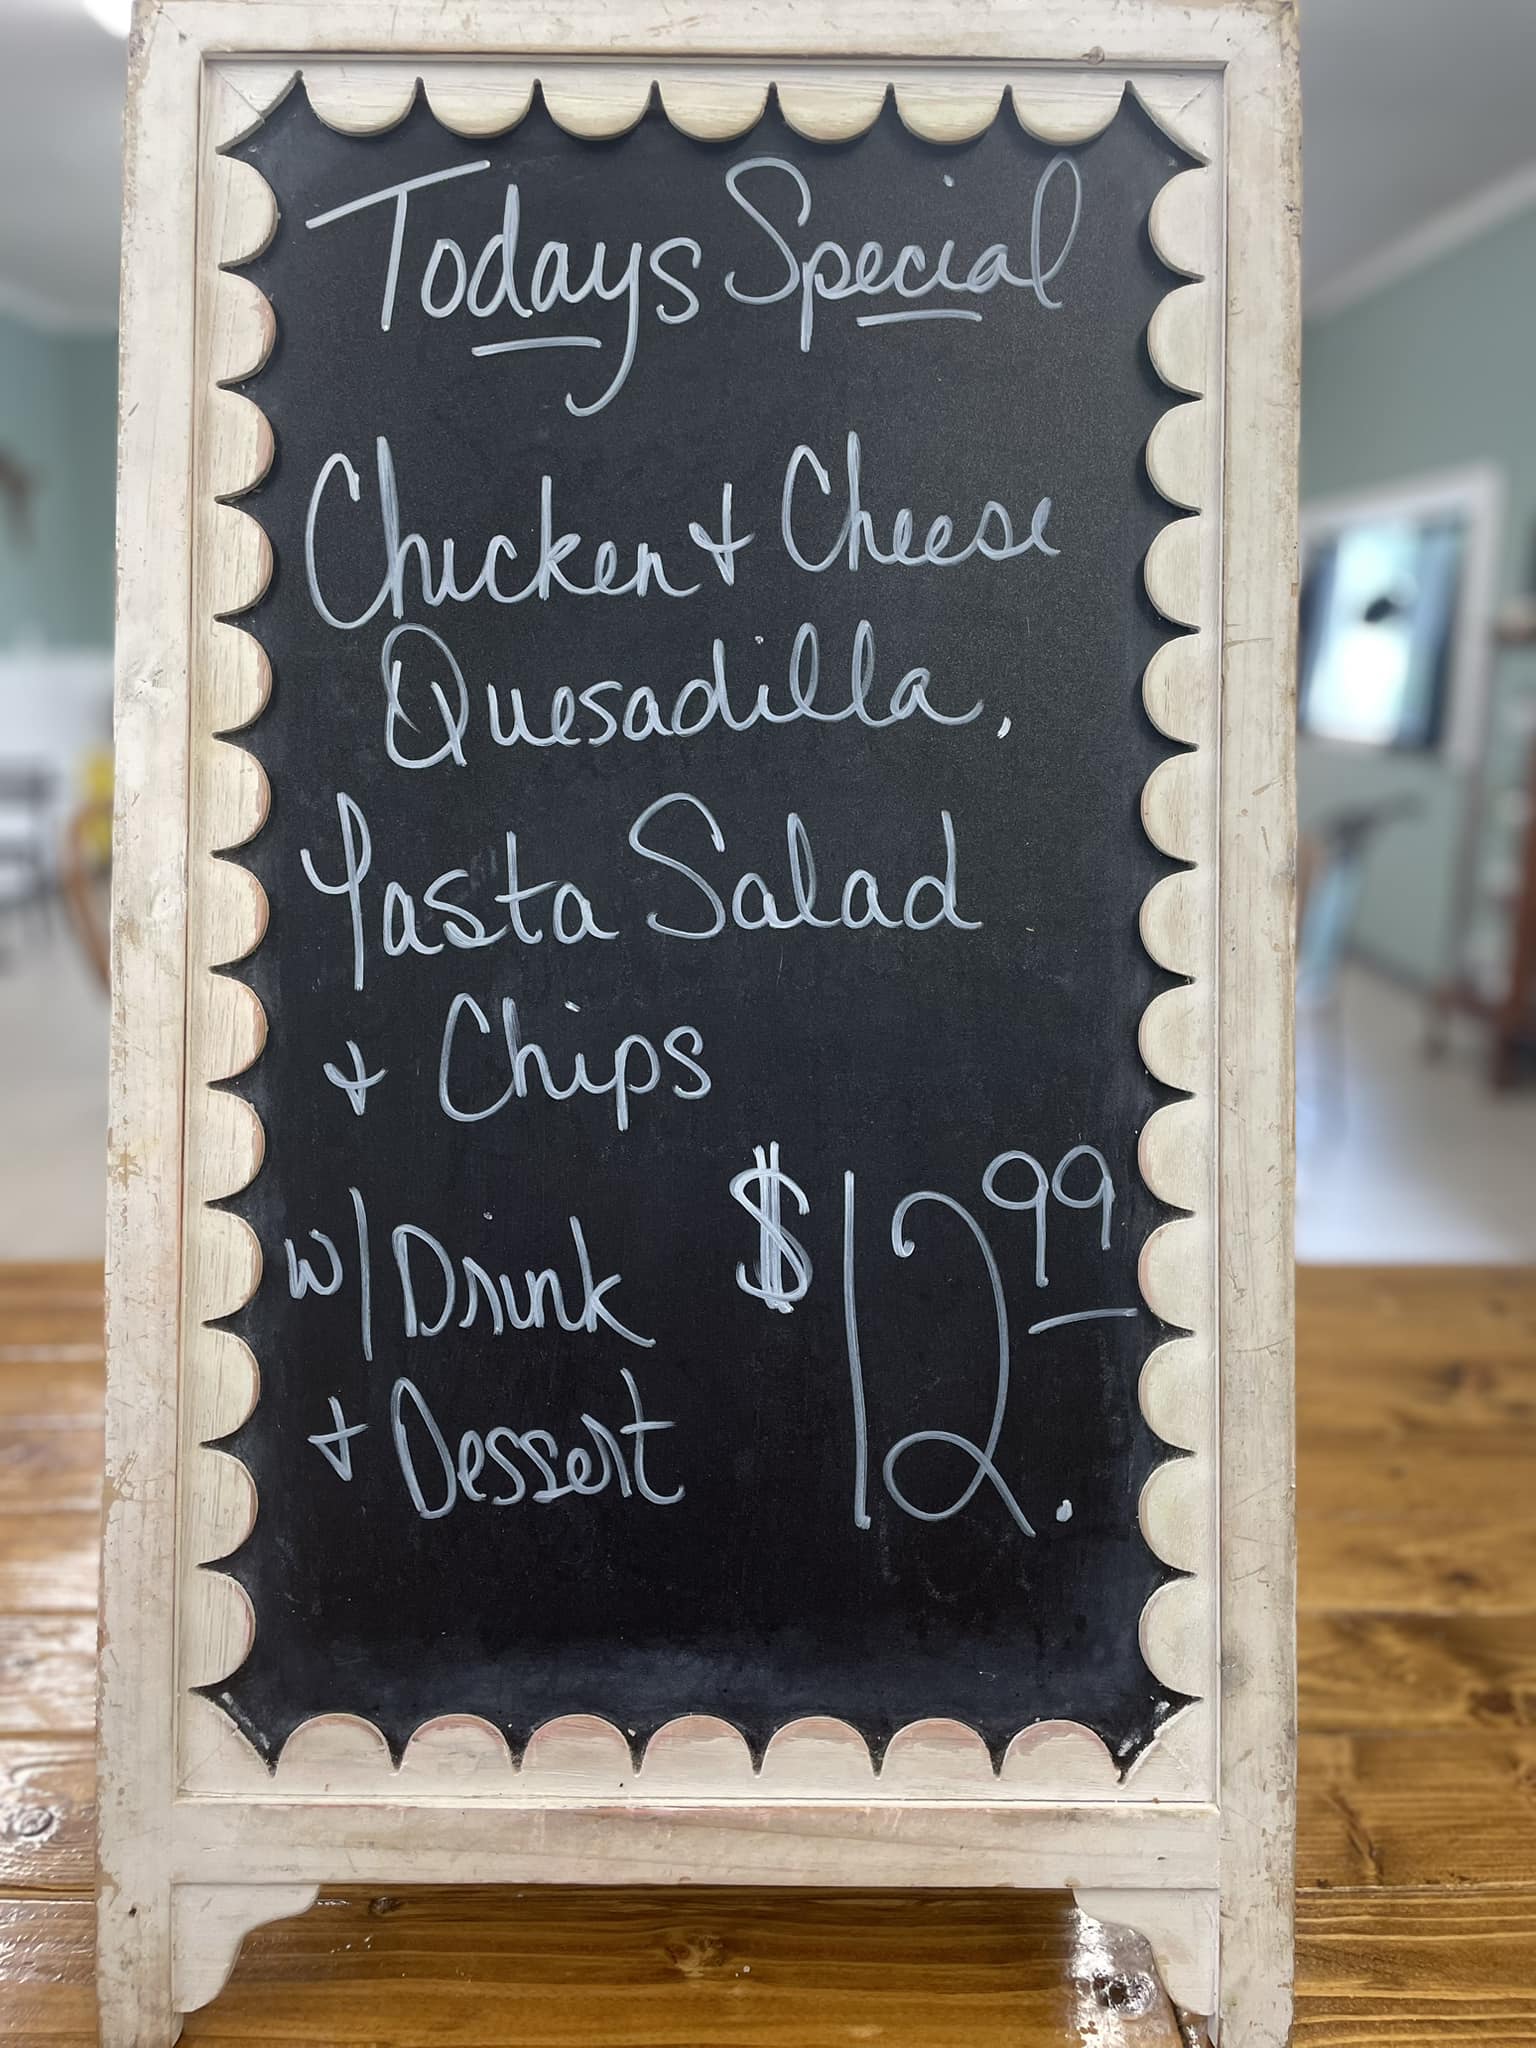 Todays Special
Chicken + Cheese
Quesadilla,
Pasta Salad
+ Chips
w/ Drink $12.99
+ Dessert